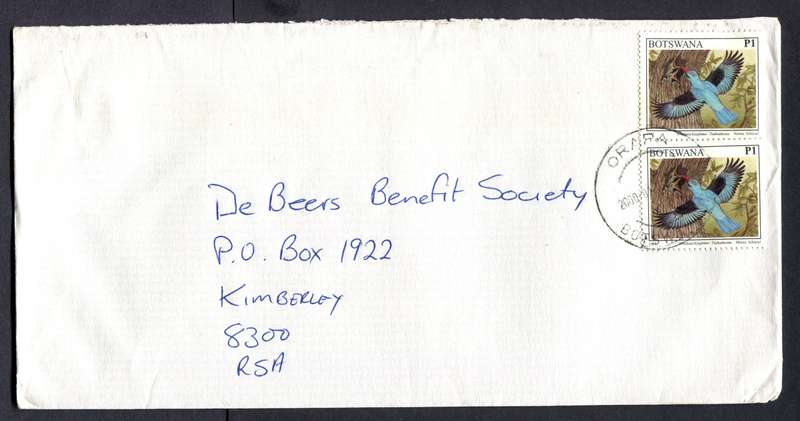 BOTSWANA P1
ORAPA
BOTSWANA P1
De Beers Benefit Society
P.O. Box 1922
Kimberley
8300
RSA